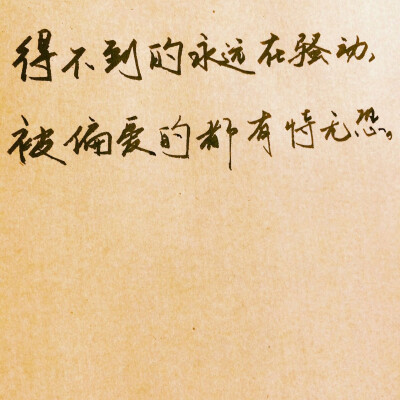 得不到的永远在骚动,
被偏爱的都有恃无恐。